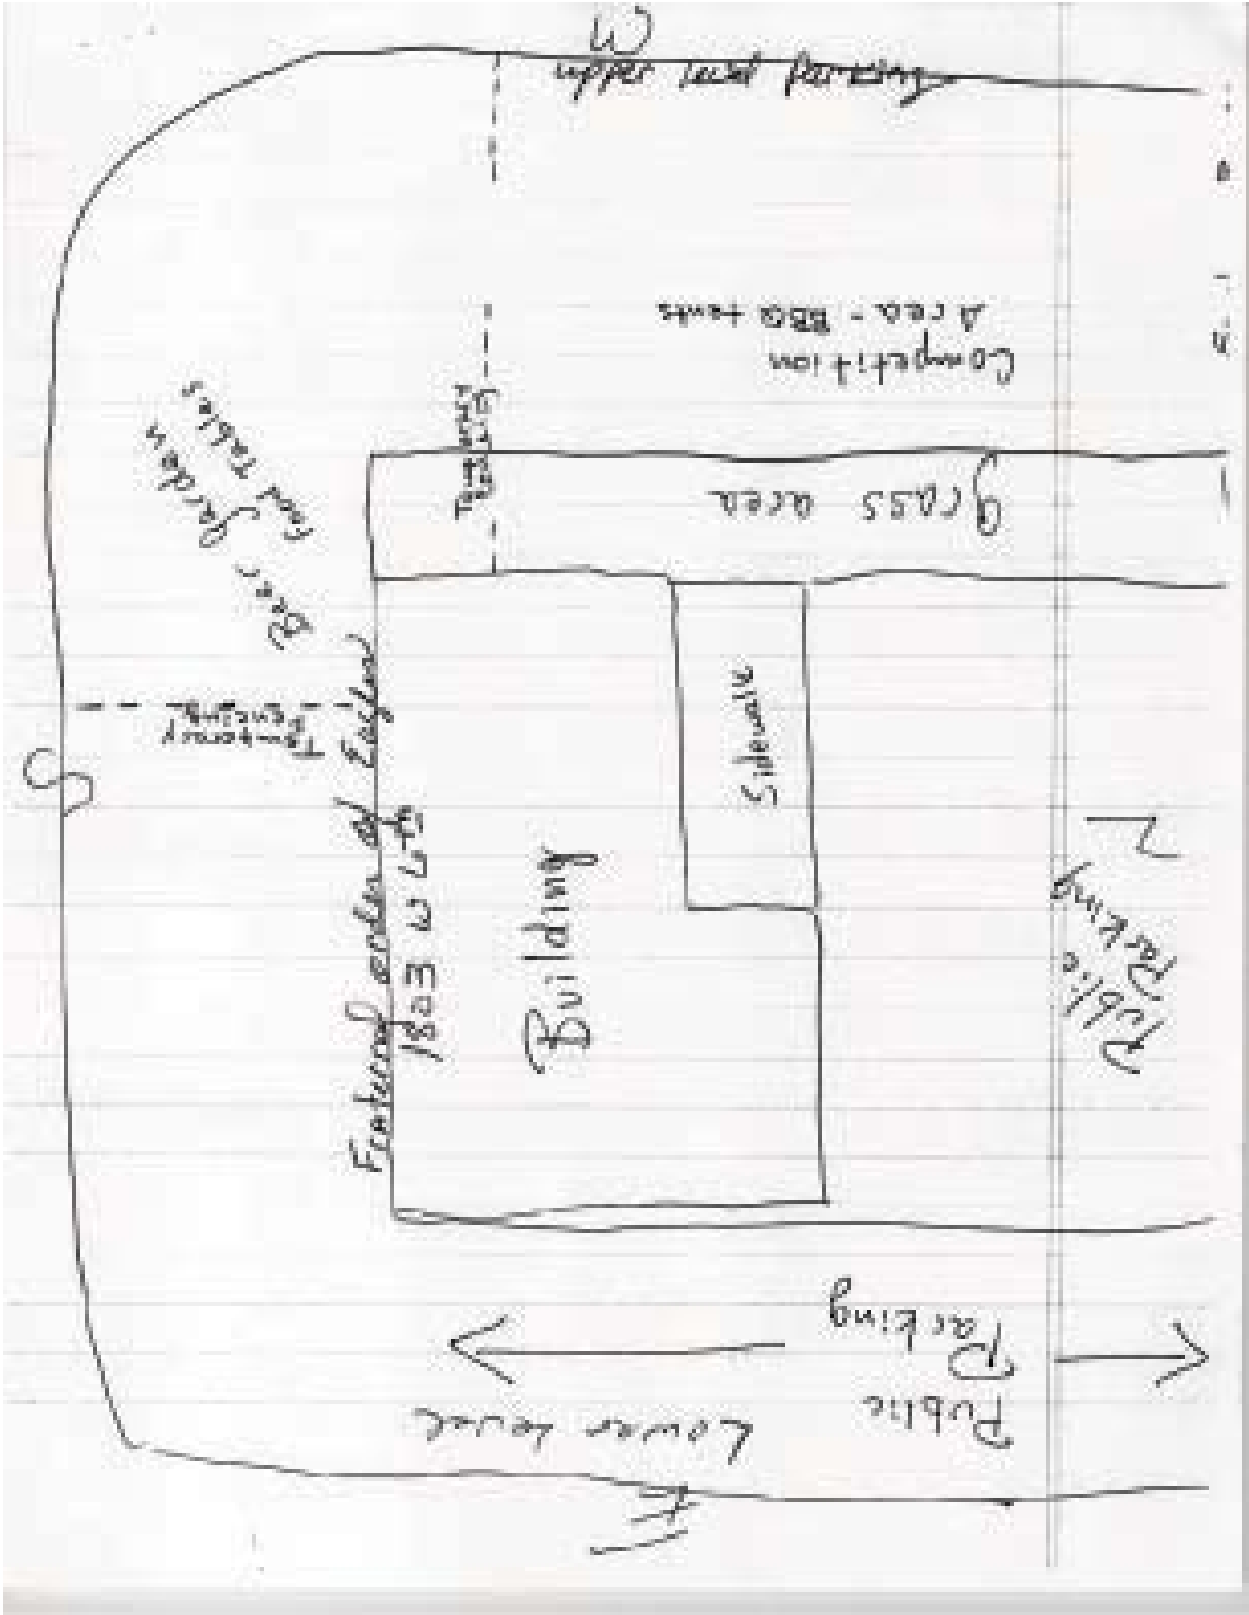 W
upper level parking
Competition
Area - BBQ tents
Temporary
Fencing
Grass area
Beer Garden
Food Tables
Temporary
Fencing
S
Fraternal order of Eagles
1803 W 6th
Building
Sidewalk
N
Public
Parking
Public
Parking
Lower Level
E